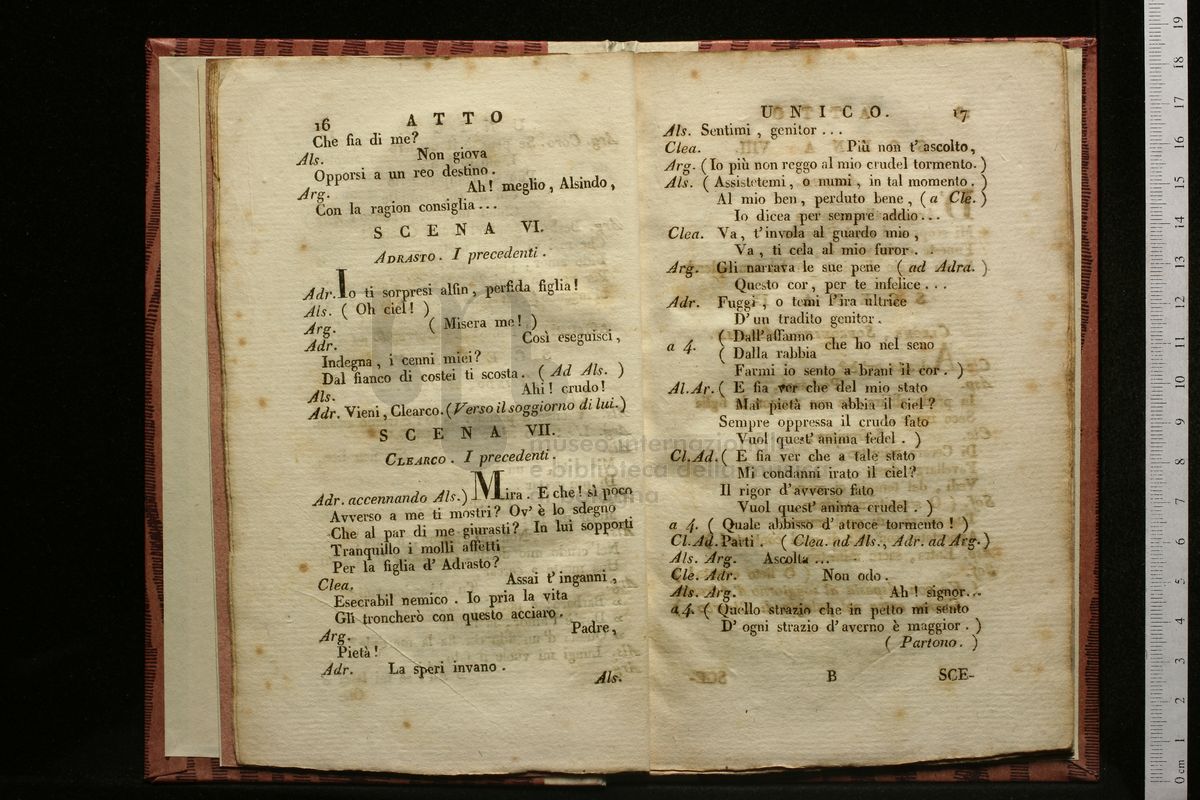 16 ATTO
Che fia di me?
Als. Non giova
Opporsi a un reo destino.
Arg. Ah! meglio, Alsindo,
Con la ragion consiglia...
SCENA VI.
ADRASTO. I precedenti.
Adr. Io ti sorpresi alfin, perfida figlia!
Als. (Oh ciel!)
Arg. (Misera me!)
Adr. Così eseguisci,
Indegna, i cenni miei?
Dal fianco di costei ti scosta. (Ad Als.)
Als. Ahi! crudo!
Adr. Vieni, Clearco. (Verso il soggiorno di lui.)
SCENA VII.
CLEARCO. I precedenti.
Adr. accennando Als.) Mira. E che! sì poco
Avverso a me ti mostri? Ov' è lo sdegno
Che al par di me giurasti? In lui sopporti
Tranquillo i molli affetti
Per la figlia d' Adrasto?
Clea. Assai t' inganni,
Esecrabil nemico. Io pria la vita
Gli troncherò con questo acciaro.
Arg. Padre,
Pietà!
Adr. La speri invano.
Als.
UNICO. 17
Als. Sentimi, genitor...
Clea. Più non t' ascolto,
Arg. (Io più non reggo al mio crudel tormento.)
Als. (Assistetemi, o numi, in tal momento.)
Al mio ben, perduto bene, (a Cle.)
Io dicea per sempre addio...
Clea. Va, t' invola al guardo mio,
Va, ti cela al mio furor..
Arg. Gli narrava le sue pene (ad Adra.)
Questo cor, per te infelice...
Adr. Fuggi, o temi l' ira ultrice
D' un tradito genitor.
a 4. (Dall' affanno che ho nel seno
(Dalla rabbia
Farmi io sento a brani il cor.)
Al.Ar. (E fia ver che del mio stato
Mai pietà non abbia il ciel?
Sempre oppressa il crudo fato
Vuol quest' anima fedel.)
Cl.Ad. (E fia ver che a tale stato
Mi condanni irato il ciel?
Il rigor d' avverso fato
Vuol quest' anima crudel.)
a 4. (Quale abbisso d' atroce tormento!)
Cl.Ad. Parti. (Clea. ad Als., Adr. ad Arg.)
Als. Arg. Ascolta...
Cle. Adr. Non odo.
Als. Arg. Ah! signor...
a 4. (Quello strazio che in petto mi sento
D' ogni strazio d' averno è maggior.)
(Partono.)
B SCE-
museo internazionale
e biblioteca della musica